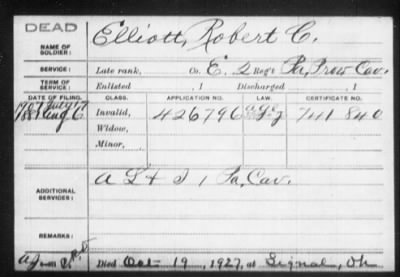 DEAD
NAME OF SOLDIER: Elliott, Robert C.
SERVICE: Late rank, Co. E. 2 Reg't Pa. Prov Cav.
TERM OF SERVICE: Enlisted , 1 Discharged , 1
DATE OF FILING. CLASS. APPLICATION NO. LAW. CERTIFICATE NO.
1881 Aug 6 Invalid, 426796 741840
Widow,
Minor,
ADDITIONAL SERVICES: A L & I 1 Pa. Cav.
REMARKS:
Died Oct 19, 1927, at Signal, Oh